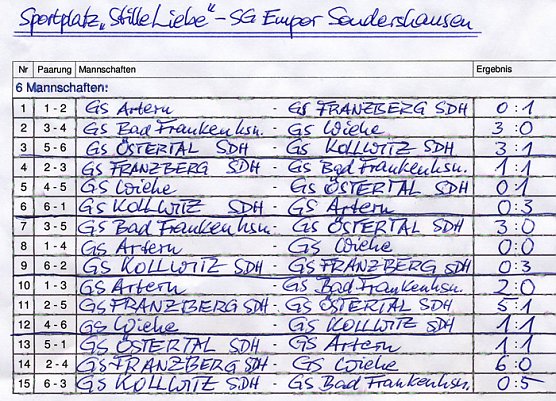 Sportplatz „Stille Liebe“ - SG Empor Sondershausen
Nr Paarung Mannschaften Ergebnis
6 Mannschaften:
1 1 - 2 GS Artern - GS FRANZBERG SDH 0 : 1
2 3 - 4 GS Bad Frankenhsn. - GS Wiehe 3 : 0
3 5 - 6 GS ÖSTERTAL SDH - GS KOLLWITZ SDH 3 : 1
4 2 - 3 GS FRANZBERG SDH - GS Bad Frankenhsn. 1 : 1
5 4 - 5 GS Wiehe - GS ÖSTERTAL SDH 0 : 1
6 6 - 1 GS KOLLWITZ SDH - GS Artern 0 : 3
7 3 - 5 GS Bad Frankenhsn. - GS ÖSTERTAL SDH 3 : 0
8 1 - 4 GS Artern - GS Wiehe 0 : 0
9 6 - 2 GS KOLLWITZ SDH - GS FRANZBERG SDH 0 : 3
10 1 - 3 GS Artern - GS Bad Frankenhsn. 2 : 0
11 2 - 5 GS FRANZBERG SDH - GS ÖSTERTAL SDH 5 : 1
12 4 - 6 GS Wiehe - GS KOLLWITZ SDH 1 : 1
13 5 - 1 GS ÖSTERTAL SDH - GS Artern 1 : 1
14 2 - 4 GS FRANZBERG SDH - GS Wiehe 6 : 0
15 6 - 3 GS KOLLWITZ SDH - GS Bad Frankenhsn. 0 : 5